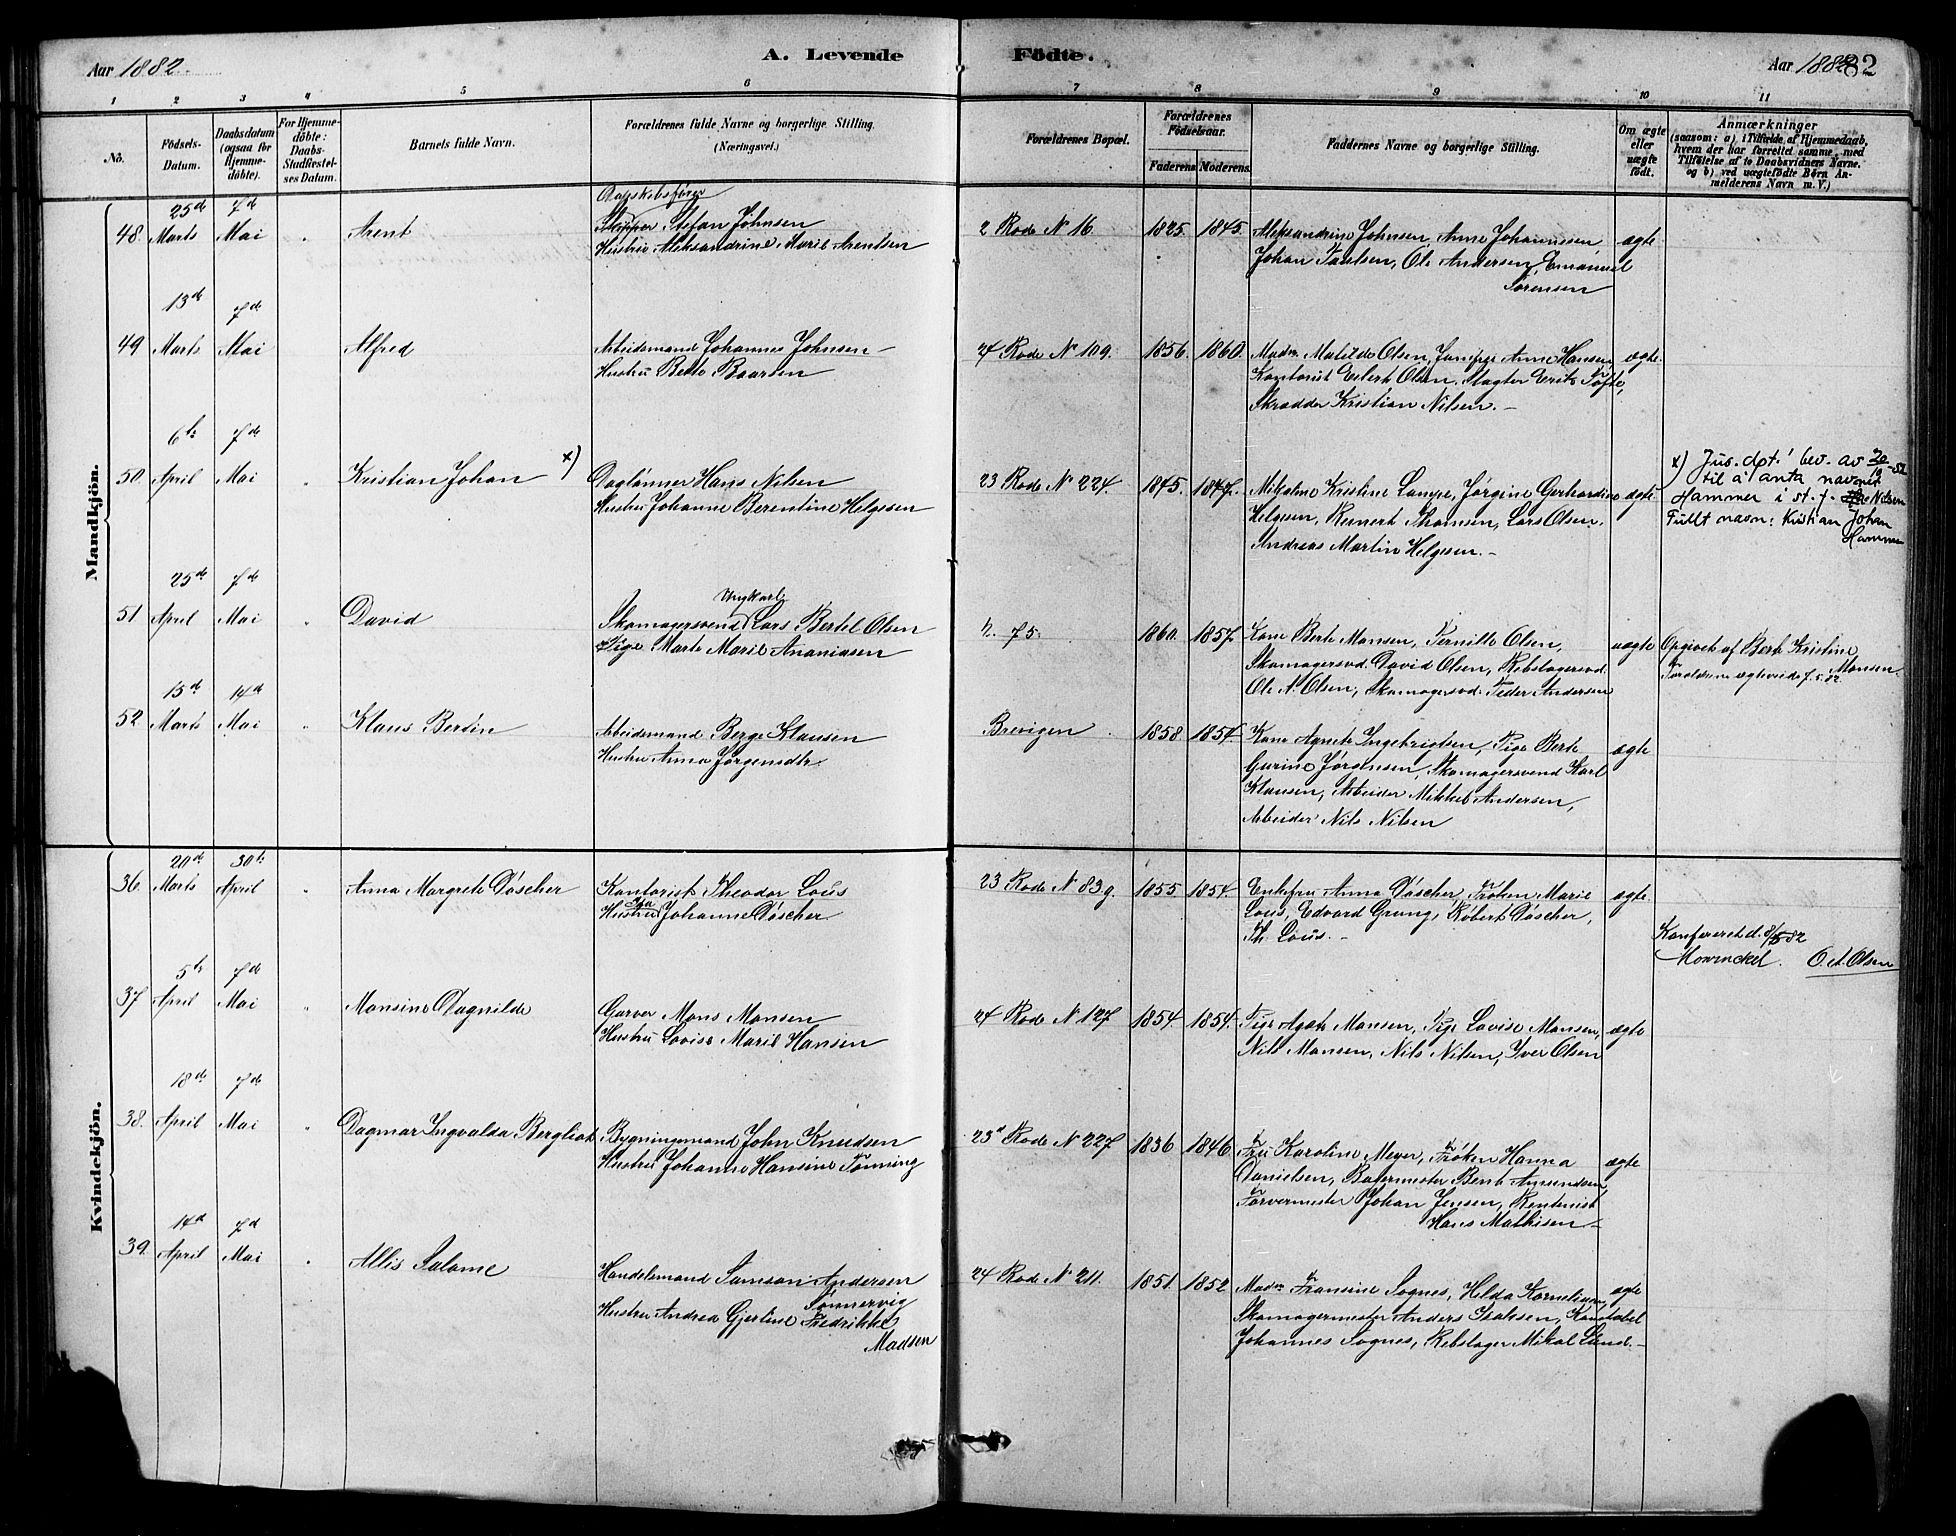 Aar 1882.
A. Levende
Födte.
Aar 1882
82
1 2 3 4 5 6 7 8 9 10 11
No.
Födsels-
Datum.
Daabsdatum
(ogsaa for
Hjemme-
döbte).
For Hjemme-
döbte:
Daabs-
Stadfæstel-
ses Datum.
Barnets fulde Navn.
Forældrenes fulde Navne og borgerlige Stilling.
(Næringsvei.)
Forældrenes Bopæl.
Forældrenes
Födselsaar.
Faderens. Moderens.
Faddernes Navne og borgerlige Stilling.
Om ægte
eller
uægte
födt.
Anmærkninger
(saasom: a) i Tilfælde af Hjemmedaab,
hvem der har forrettet samme, med
Tilföielse af to Daabsvidners Navne,
og b) ved uægtefödte Börn An-
melderens Navn m. V.)
Mandkjön.
48. 25de Marts 7de Mai Arent
Skipper Stefan Johnsen
Hustru Aleksandrine Marie Arentsen
2 Rode No 16. 1825. 1845.
Aleksandrine Johnsen, Anne Johannesen
Johan Paulsen, Ole Andersen, Emanuel
Sørensen
ægte
49 13de Marts 7de Mai Alfred
Arbeidsmand Johannes Johnsen
Hustru Berte Baarsen
24 Rode No 109. 1856. 1860.
Madm. Matilde Olsen, Jomfru Anne Hansen
Kontorist Eilert Olsen, Slagter Erik Tofte,
Skrædder Kristian Nilsen.
ægte.
50. 6te April 7de Mai Kristian Johan x)
Daglønner Hans Nilsen
Hustru Johanne Berentine Helgesen
23 Rode No 224. 1845. 1847.
Kristine Lampe, Jørgine Gerhardine
Helgesen, Reinert Thomsen, Lars Olsen,
Andreas Martin Helgesen.
ægte
x) Jus. dpt.' bev. av
til å anta navnet
Hammer i st. f. Nilsen
Fullt navn: Kristian Johan
Hammer
51 25de April 7de Mai David
Ungkarl
Skomagersvend Lars Bertel Olsen
Pige Marte Marie Ananiasen
2. 75. 1860. 1857.
Kone Berte Monsen, Pernille Olsen,
Skomagersvd. David Olsen, Rebslagersvd.
Ole N. Olsen, Skomagersvd. Peder Andersen
uægte
Opgivet af Berte Kristine
Monsen.
Forældrene ægteviede 7.5.82.
52. 15de Marts 14de Mai Klaus Berdin
Arbeidsmand Berge Klausen
Hustru Anna Jørgensdtr.
Brevigen 1858 1854.
Kone Agnete Ingebrigtsen, Pige Berte
Gurine Jørgensen, Skomagersvend Karl
Klausen, Arbeider Mikkel Andersen,
Arbeider Nils Nilsen
ægte
Kvindekjön.
36. 20de Marts 30te April Anna Margrete Döscher
Kontorist Theodor Lous
Hustru Ida Johanne Döscher
23 Rode No 83g. 1855 1854.
Enkefru Anna Döscher, Frøken Marie
Lous, Edvard Grung, Robert Döscher,
Th. Lous.
ægte
Konfereret d. 8/5 82
Mowinckel. O. A. Olsen
37 5te April 7de Mai Monsine Dagnilde
Garver Mons Monsen
Hustru Lovise Marie Hansen
24 Rode No 127 1854 1854.
Pige Agate Monsen, Pige Lovise Monsen,
Nils Monsen, Nils Nilsen, Iver Olsen
ægte
38. 18de April 7de Mai Dagmar Ingvalda Bergliot
Bygningsmand John Knudsen
Hustru Johanne Hansine Tönning
23de Rode No 227 1836 1846.
Fru Karoline Meyer, Frøken Hanna
Danielsen, Bagermester Bernt Amundsen
Farvermester Johan Jensen, Rentenist
Hans Mathisen
ægte
39. 14de April 7de Mai Allis Salome
Handelsmand Samson Andersen
Sönnervig
Hustru Andrea Gjertine Fredrikke
Madsen
24 Rode No 211. 1851. 1852
Madm. Fransine Sognes, Helda Kornelius,
Skomagermester Anders Isaksen, Konstabel
Johannes Sognes, Rebslager Mikal Lund.
ægte